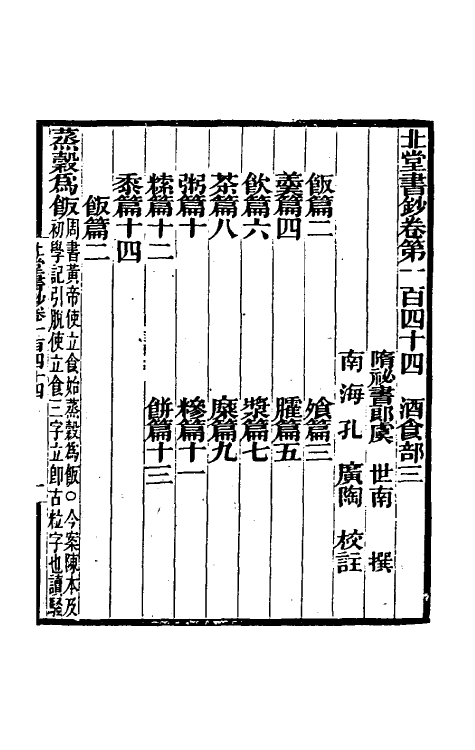 北堂書鈔卷第一百四十四　酒食部三
隋祕書郎虞　世南　撰
南海孔　廣陶　校註
飯篇二　飧篇三
羹篇四　臛篇五
飲篇六　漿篇七
茶篇八　糜篇九
粥篇十　糝篇十一
糉篇十二　餅篇十三
黍篇十四
飯篇二
蒸穀爲飯周書黃帝使立食始蒸穀爲飯○今案陳本及
初學記引脫使立食三字立卽古粒字也讀騃
北堂書鈔卷一百四十四　一